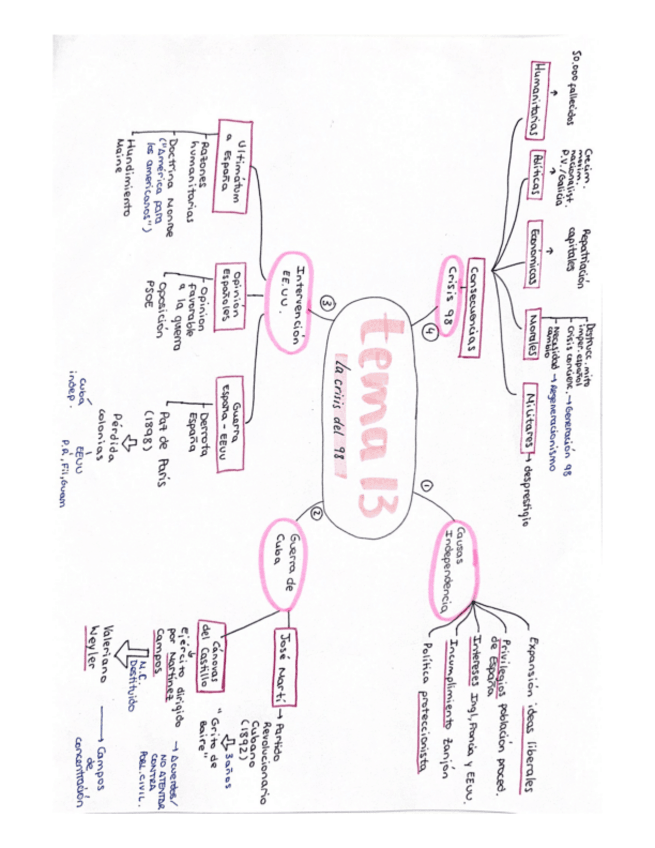 tema 13
la crisis del 98
①
Causas
Independencia
Expansión ideas liberales
Privilegios población proced.
de España
Intereses Ingl, Francia y EEUU.
Incumplimiento Zanjón
Política proteccionista
②
Guerra de
Cuba
José Martí → Partido
Revolucionario
Cubano
(1892)
↓ 3 años
"Grito de
Baire"
Cánovas
del Castillo
↓
ejército dirigido
por Martínez
Campos
→ Acuerdos/
NO ATENTAR
CONTRA
POBL. CIVIL.
M.C.
Destituido
Valeriano
Weyler
→ Campos
de
concentración
③
Intervención
EE.UU.
Ultimátum
a España
Razones
humanitarias
Doctrina Monroe
("América para
los americanos")
Hundimiento
Maine
Opinión
Españoles
Opinión
favorable
a la guerra
Oposición
PSOE
Guerra
España - EEUU
Derrota
España
Paz de París
(1898)
Pérdida
colonias
Cuba
indep.
EEUU
P.R, Fil, Guam
④
Consecuencias
Crisis 98
Humanitarias
↑
50.000 fallecidos
Políticas
↑
Crecim.
movim.
nacionalist.
P.V./Galicia
Económicas
↑
Repatriación
capitales
Morales
Destrucc. mito
imper. español
Crisis concienc. → Generación 98
Necesidad → Regeneracionismo
cambio
Militares → desprestigio